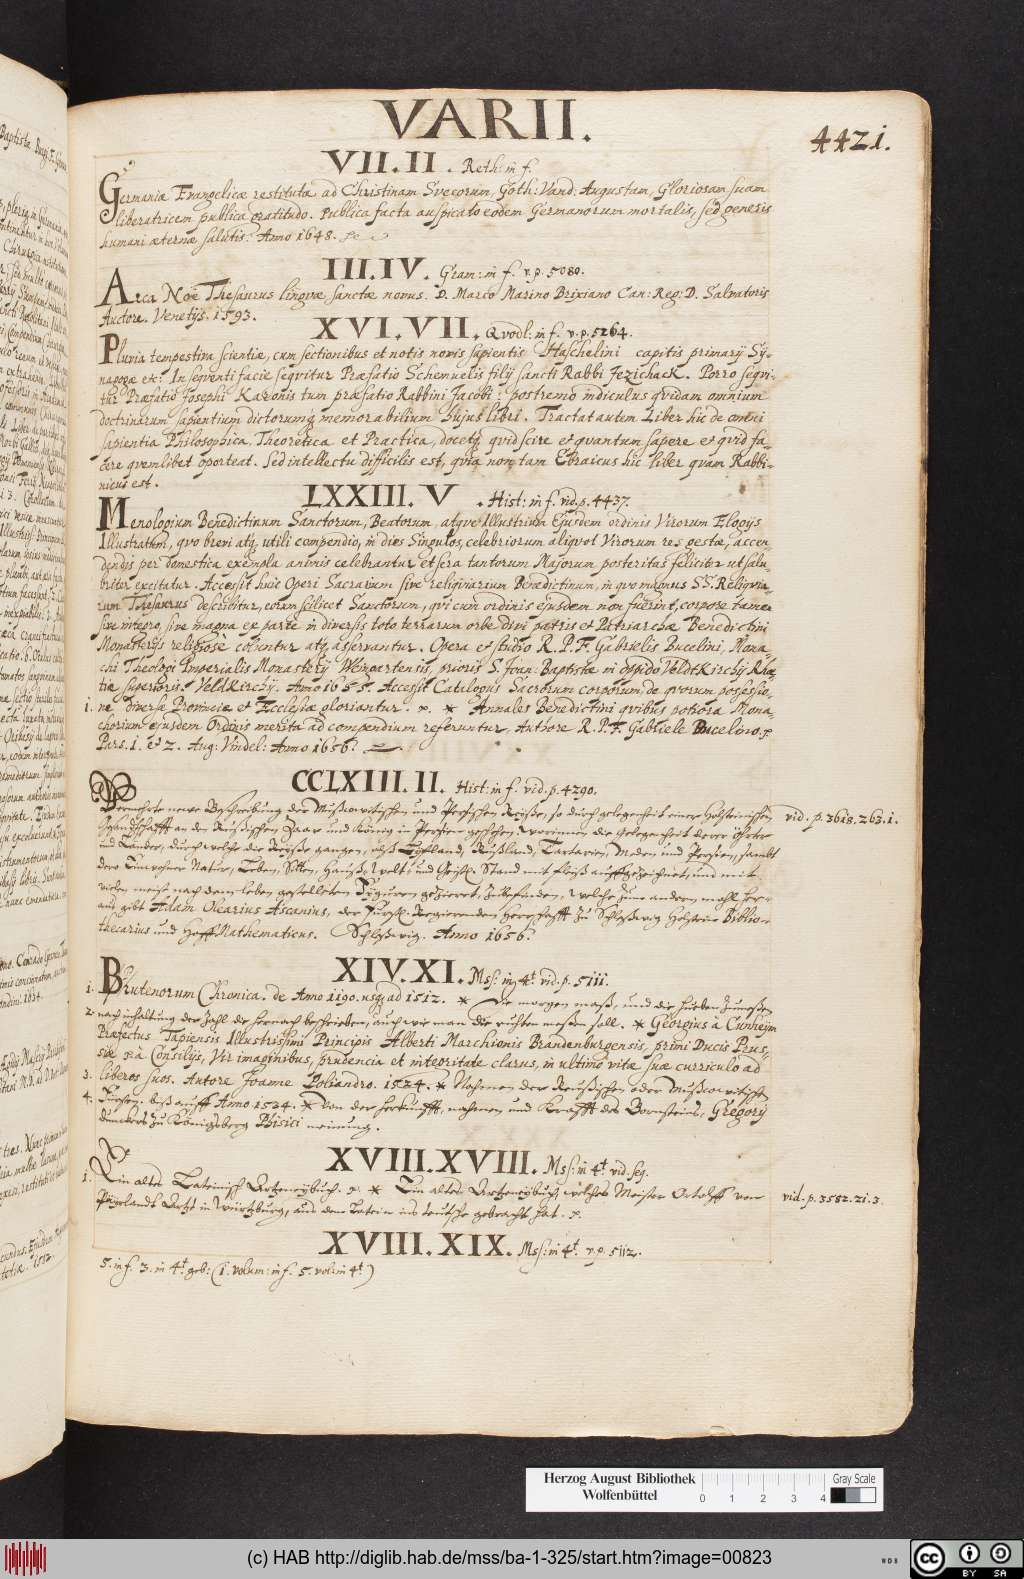 VARII.
4421.
VII. II. Reth: in f.
Germaniæ Evangelicæ restitutæ ad Christinam Svecorum, Goth: Vand: Augustam, Gloriosam suam
liberatricem publica gratitudo. Publica facta auspicato eodem Germanorum mortalis, sed generis
humani æternæ salutis. Anno 1648.
III. IV. Gram: in f. v. p. 5080.
Arca Noe Thesaurus linguæ sanctæ novus. D. Marco Marino Brixiano Can: Reg: D. Salvatoris
Auctore. Venetijs. 1593.
XVI. VII. Qvodl: in f. v. p. 5264.
Pluvia tempestiva scientiæ, cum sectionibus et notis novis sapientis Haschelini capitis primarij Sy-
nagogæ etc: In seqventi facie seqvitur Præfatio Schemuelis filij sancti Rabbi Jezichack. Porro seqvi-
tur Præfatio Josephi Karonis tum præfatio Rabbini Jacobi: postremo indiculus qvidam omnium
doctrinarum sapientium dictorumq memorabilium hujus libri. Tractat autem Liber hic de omni
sapientia Philosophica, Theoretica et Practica, docetq qvid scire et qvantum sapere et qvid fa-
cere qvemlibet oporteat. Sed intellectu difficilis est, qvia non tam Ebraicus hic liber qvam Rabbi-
nicus est.
LXXIII. V. Hist: in f. vid. p. 4437.
Menologium Benedictinum Sanctorum, Beatorum, atqve Illustrium Ejusdem ordinis Virorum Elogijs
Illustratum, qvo brevi atq utili compendio, in dies Singulos, celebriorum aliqvot Virorum res gestæ, accen-
dendis per domestica exempla animis celebrantur et sera tantorum Majorum posteritas feliciter ut salu-
briter excitatur. Accessit huic Operi Sacrarium sive religiuarium Benedictinum, in qvo magnus SS. Reliqvia-
rum Thesaurus describitur, eorum scilicet Sanctorum, qvi cum ordinis ejusdem non fuerint, corpore tamen
sive integro, sive magna ex parte in diversis toto terrarum orbe divi patris et Patriarchæ Benedictini
Monasterijs religiosè coluntur atq asservantur. Opera et studio R. P. F. Gabrielis Bucelini, Mona-
chi Theologi Imperialis Monasterij Weingartensis, prioris S. Joan: Baptistæ in oppido Veldtkirchij Rhæ-
tiæ superioris. Veldkirchij. Anno 1655. Accessit Catalogus Sacrorum corporum, de qvorum possessio-
1. ne diversæ Provinciæ et Ecclesiæ gloriantur. * Annales Benedictini qvibus potiora Mona-
chorum ejusdem Ordinis merita ad compendium referuntur, Authore R. P. F. Gabriele Bucelino.
Pars. 1. et 2. Aug: Vindel: Anno 1656.
CCLXIII. II. Hist: in f. vid. p. 4290.
Vermehrte newe Beschreibung der Mußcowitischen und Persischen Reyse, so durch gelegenheit einer Holsteinischen
vid. p. 3618. 263. 1.
Gesandtschafft an den Rußischen Zaar und König in Persien geschehen, Worinnen die Gelegenheit derer öhrter
und Länder, durch welche die Reyse gangen, alß Lyffland, Rußland, Tartarien, Meden und Persien, sambt
dero Einwohner Natur, Leben, Sitten, Hauß, Welt, und Geistl. Stand mit fleiß auffgezeichnet, und mit
vielen meist nach dem leben gestelleten Figuren gezieret, zubefinden, Welche zum andern mahl herr-
auß gibt Adam Olearius Ascanius, der Fürstl. Regierenden Herrschafft zu Schleßwig Holstein Biblio-
thecarius und Hoff Mathematicus. Schleßwig. Anno 1656.
XIV. XI. Mss: in 4t. vid. p. 5111.
1. Brutenorum Chronica. de Anno 1190. usq ad 1512. * De morgen maß, und die huben zumeßen
2. nach inhaltung der Zahl die hernach beschrieben, auch wie man die ruhten meßen soll. * Georgius à Cunheim
Præfectus Tapiensis Illustrissimi Principis Alberti Marchionis Brandenburgensis, primi Ducis Prus-
siæ à Consilijs, Vir imaginibus, prudencia et integritate clarus, in ultimo vitæ suæ curriculo ad
3. liberos suos. Autore Joanne Poliandro. 1524. * Nahmen der Reußischen oder Mußcowitischen
4. Fürsten. biß auff Anno 1524. * Von der herkunfft, nahmen und Krafft des Bornsteins, Gregorij
dunckers zu Königsberg Phisici meinung.
XVIII. XVIII. Mss: in 4t. vid. seq.
1. Ein altes Lateinisch Artzeneybuch. * Ein altes Artzeneybuch, welches Meister Ortolff von
vid. p. 3582. 21. 3.
Peyerlandt Artzt in Würtzburg, aus dem Latein ins teutsche gebracht hat.
XVIII. XIX. Mss: in 4t. v. p. 5112.
5. in f. 3. in 4t. geb: (1. volum: in f. 5. vol: in 4t.)
Herzog August Bibliothek
Wolfenbüttel
0 1 2 3 4
Gray Scale
(c) HAB http://diglib.hab.de/mss/ba-1-325/start.htm?image=00823
WDB
cc BY SA